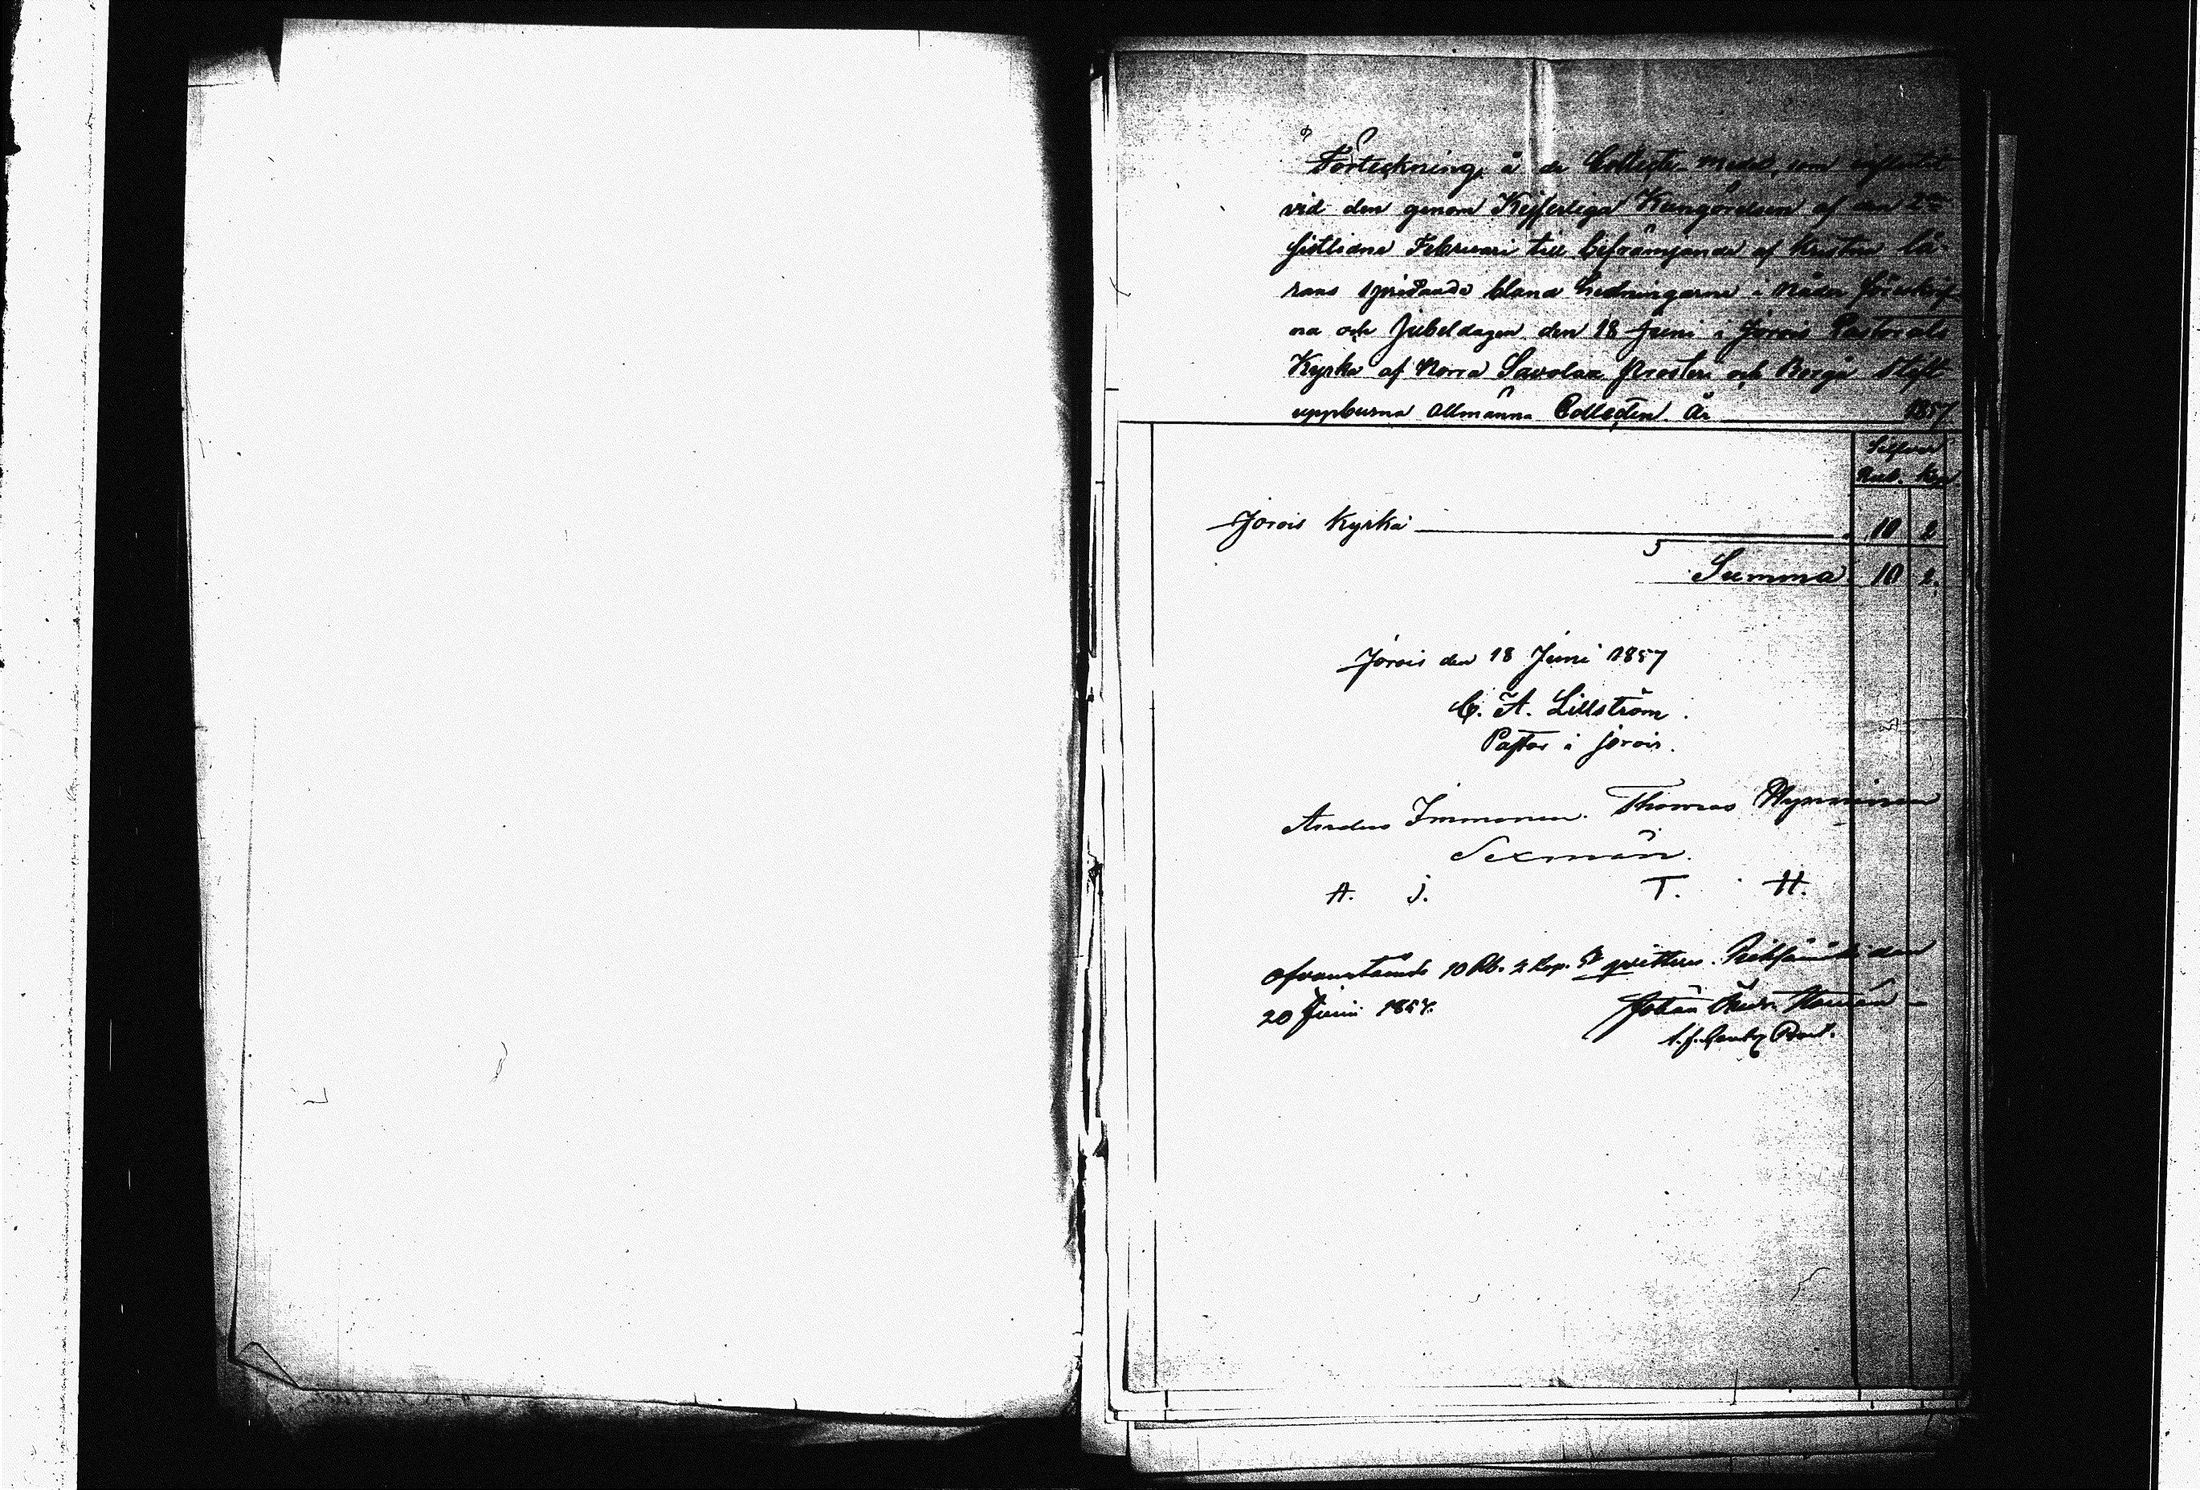 Förteckning å de Collect-medel, som influtit
vid den genom Kejserliga Kungörelsen af den 2
sistlidne Februari till befrämjande af Kristna lä-
rans spridande bland hedningarne i
na och Jubeldagen den 18 Juni i Jorois Pastorats
Kyrka af Norra Savolax Prosteri och Borgå Stift
uppburna allmänna Collecten. År 1857
Silfver
Rub. Kop
Jorois Kyrka 10 2
Summa 10 2.
Jorois den 18 Juni 1857
C. A. Lillström.
Pastor i Jorois.
Anders Immonen. Thomas
Sexmän.
A. J. T. H.
Ofvanstående 10 Rb. 2 Kop. Sr qvitteras. den
20 Junii 1857. Johan